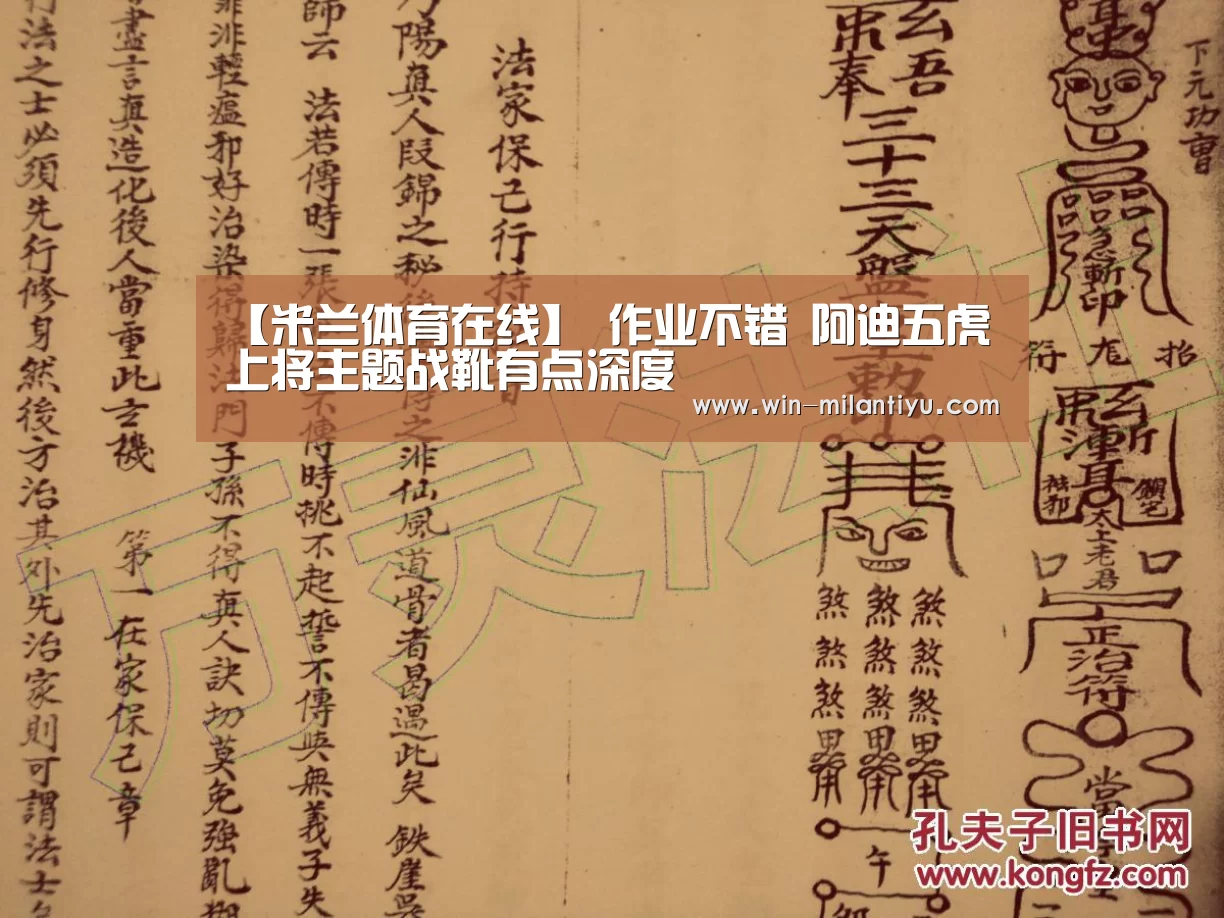 下元功曹
玄吾
奉
三十三天
急斬印
太上老君
正治符
煞煞煞
煞煞煞
煞煞煞
午
法家保己行持
陽真人段錦之秘
之非仙風道骨者曷遇此矣 鉄崖
師云 法若傳時一張
不傳時桃不起誓不傳與無義子失
非輕瘟邪好治染得歸法門子孫不得真人訣切莫免強亂
盡言真造化後人當重此玄機
第一在家保己章
行法之士必須先行修身然後方治其外先治家則可謂法士
【米兰体育在线】 作业不错 阿迪五虎
上将主题战靴有点深度
www.win-milantiyu.com
万灵法社
孔夫子旧书网
www.kongfz.com